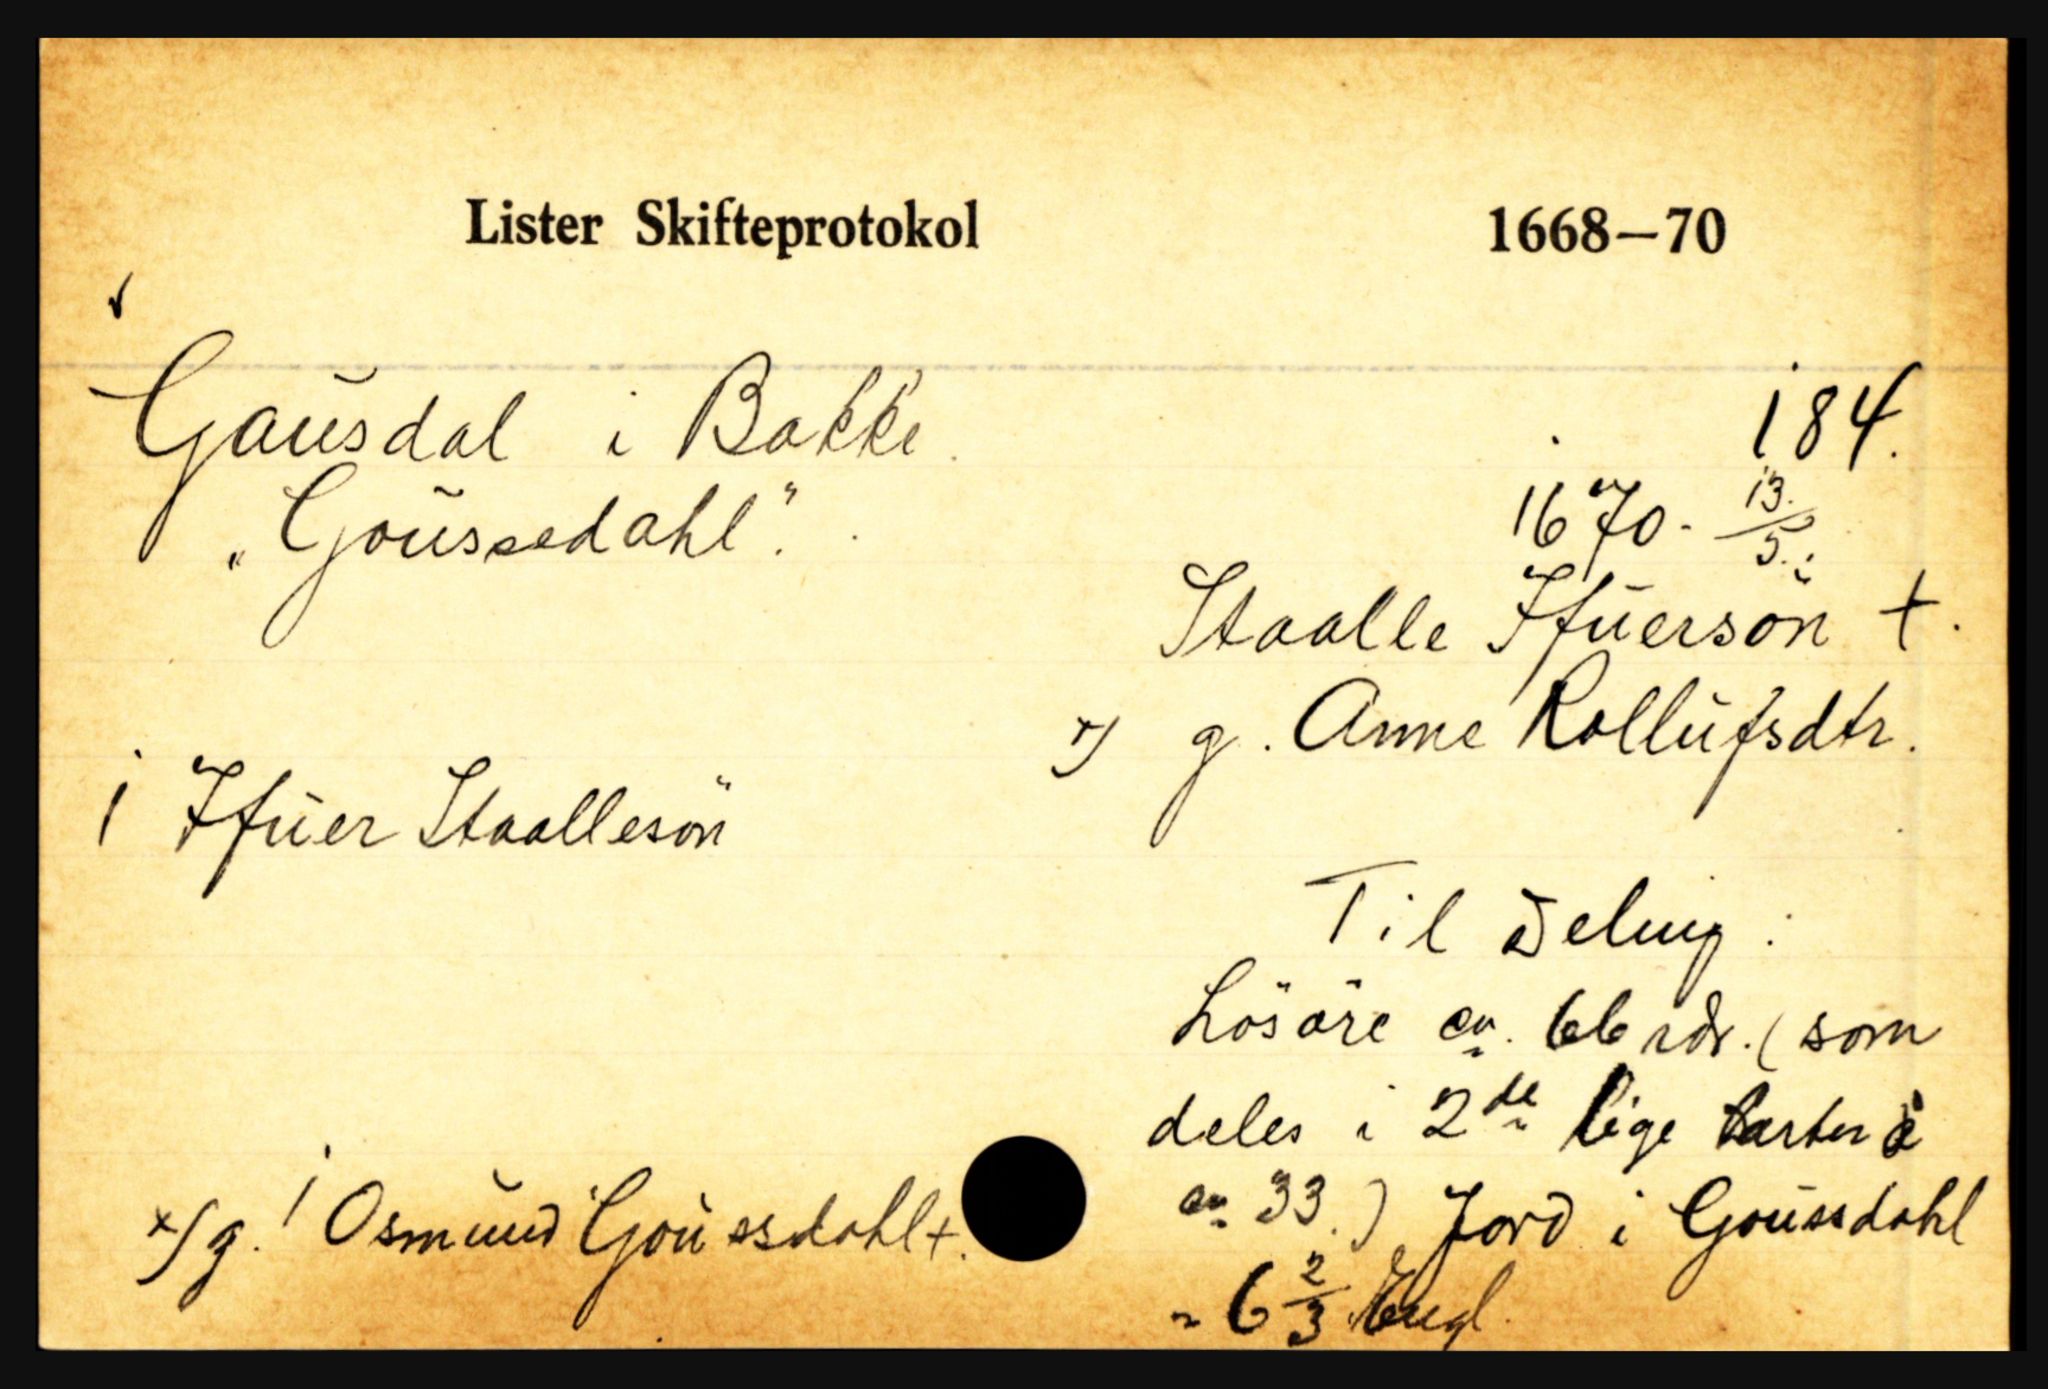 Lister Skifteprotokol 1668–70
Gausdal i Bakke. 184.
"Goussedahl". 1670 - 13/5.
Staalle Ifuersön +.
x) g. Anne Rollufsdtr.
1 Ifuer Staallesön
Til Deling:
Lösöre en. 66 rdr. (som
deles i 2de lige parter à
en 33.) Jord i Goussdahl
x) g. 1 Osmund Goussdahl +.
- 6 2/3 Engl.